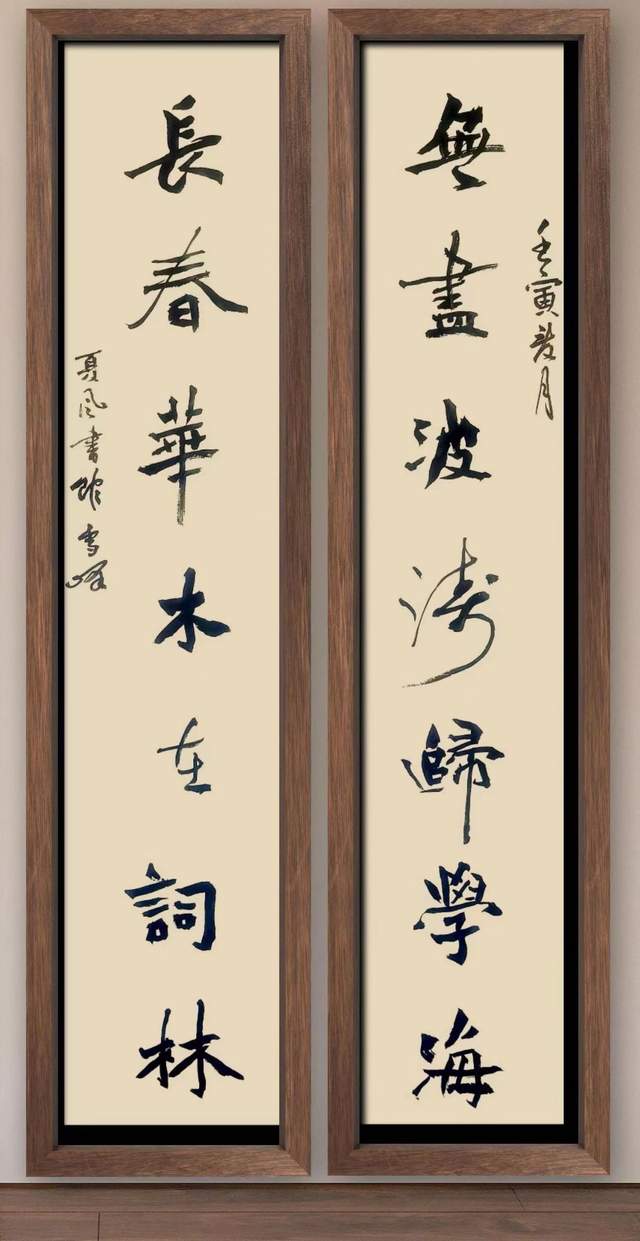 壬寅月
無盡波濤歸學海
長春華木在詞林
夏风書館雪峰